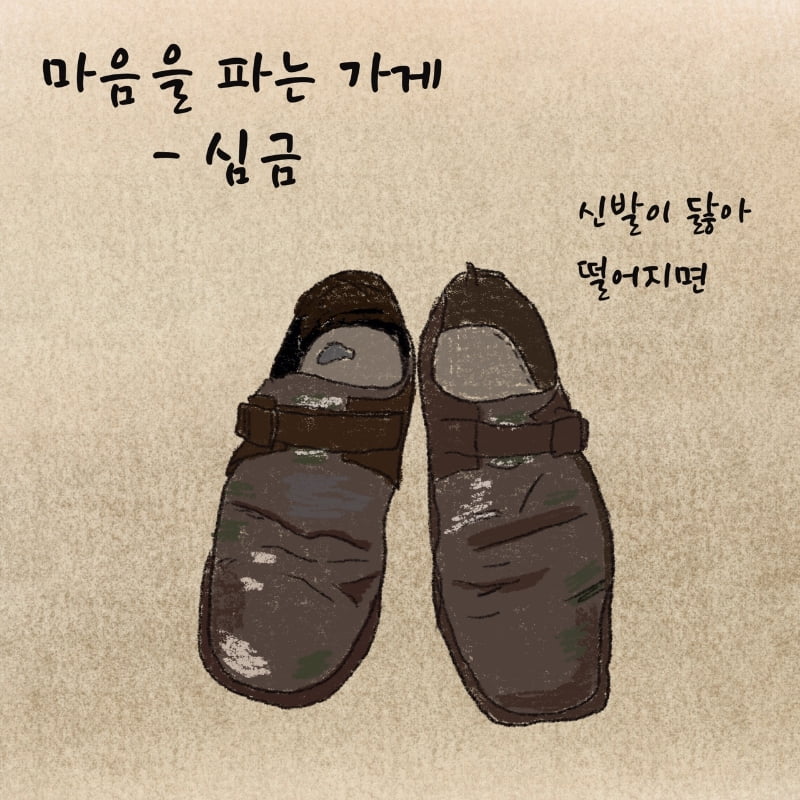 마음을 파는 가게
- 심금
신발이 닳아
떨어지면